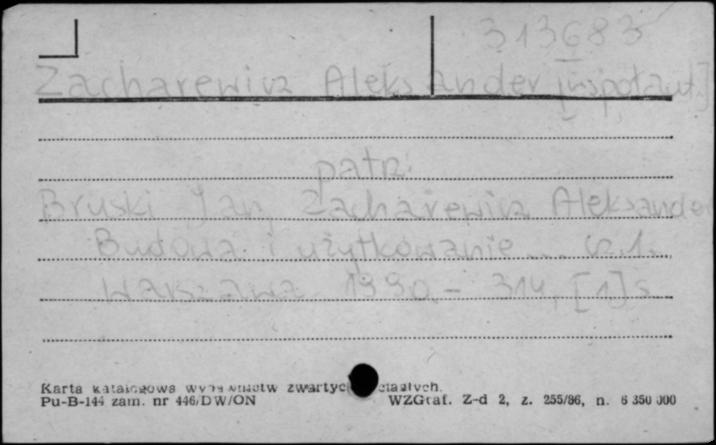 313683
I
Zacharewicz Aleksander [współaut.]
patrz:
Bruski Jan, Zacharewicz Aleksander
Budowa i użytkowanie ... cz. 1.
Warszawa 1990. - 314, [1] s.
Karta katalogowa wydawnictw zwartych
Pu-B-144 zam. nr 446/DW/ON WZGraf. Z-d 2, z. 255/86, n. 6 350 000